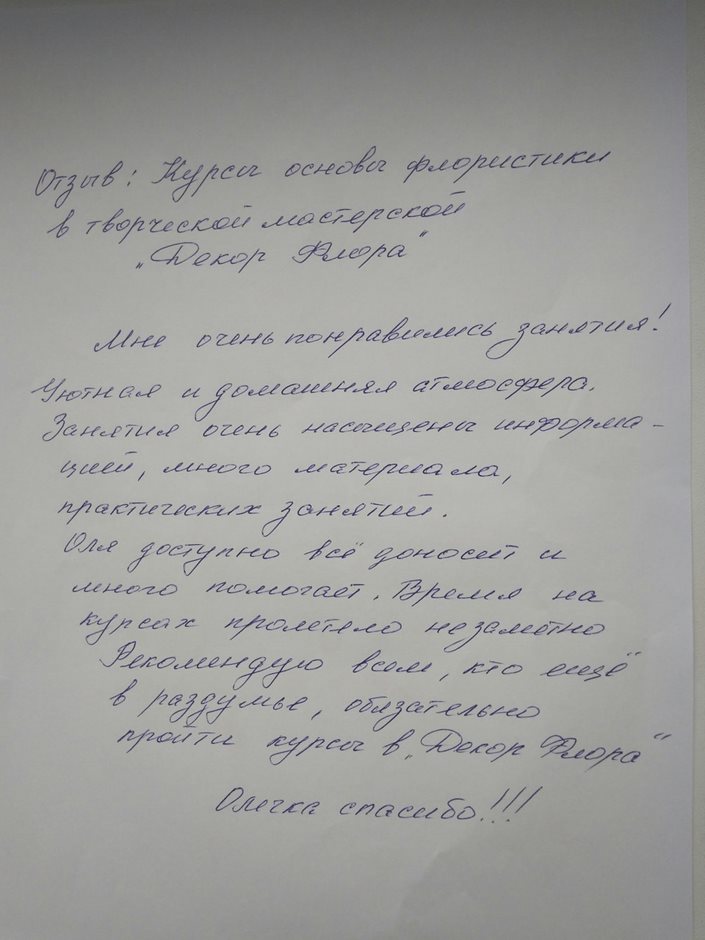 Отзыв: Курсы основы флористики
в творческой мастерской
„Декор Флора“
Мне очень понравились занятия!
Уютная и домашняя атмосфера.
Занятия очень насыщены информа-
цией, много материала,
практических занятий.
Оля доступно всё доносит и
много помогает. Время на
курсах пролетело незаметно
Рекомендую всем, кто ещё
в раздумье, обязательно
пройти курсы в „Декор Флора“
Олечка спасибо!!!